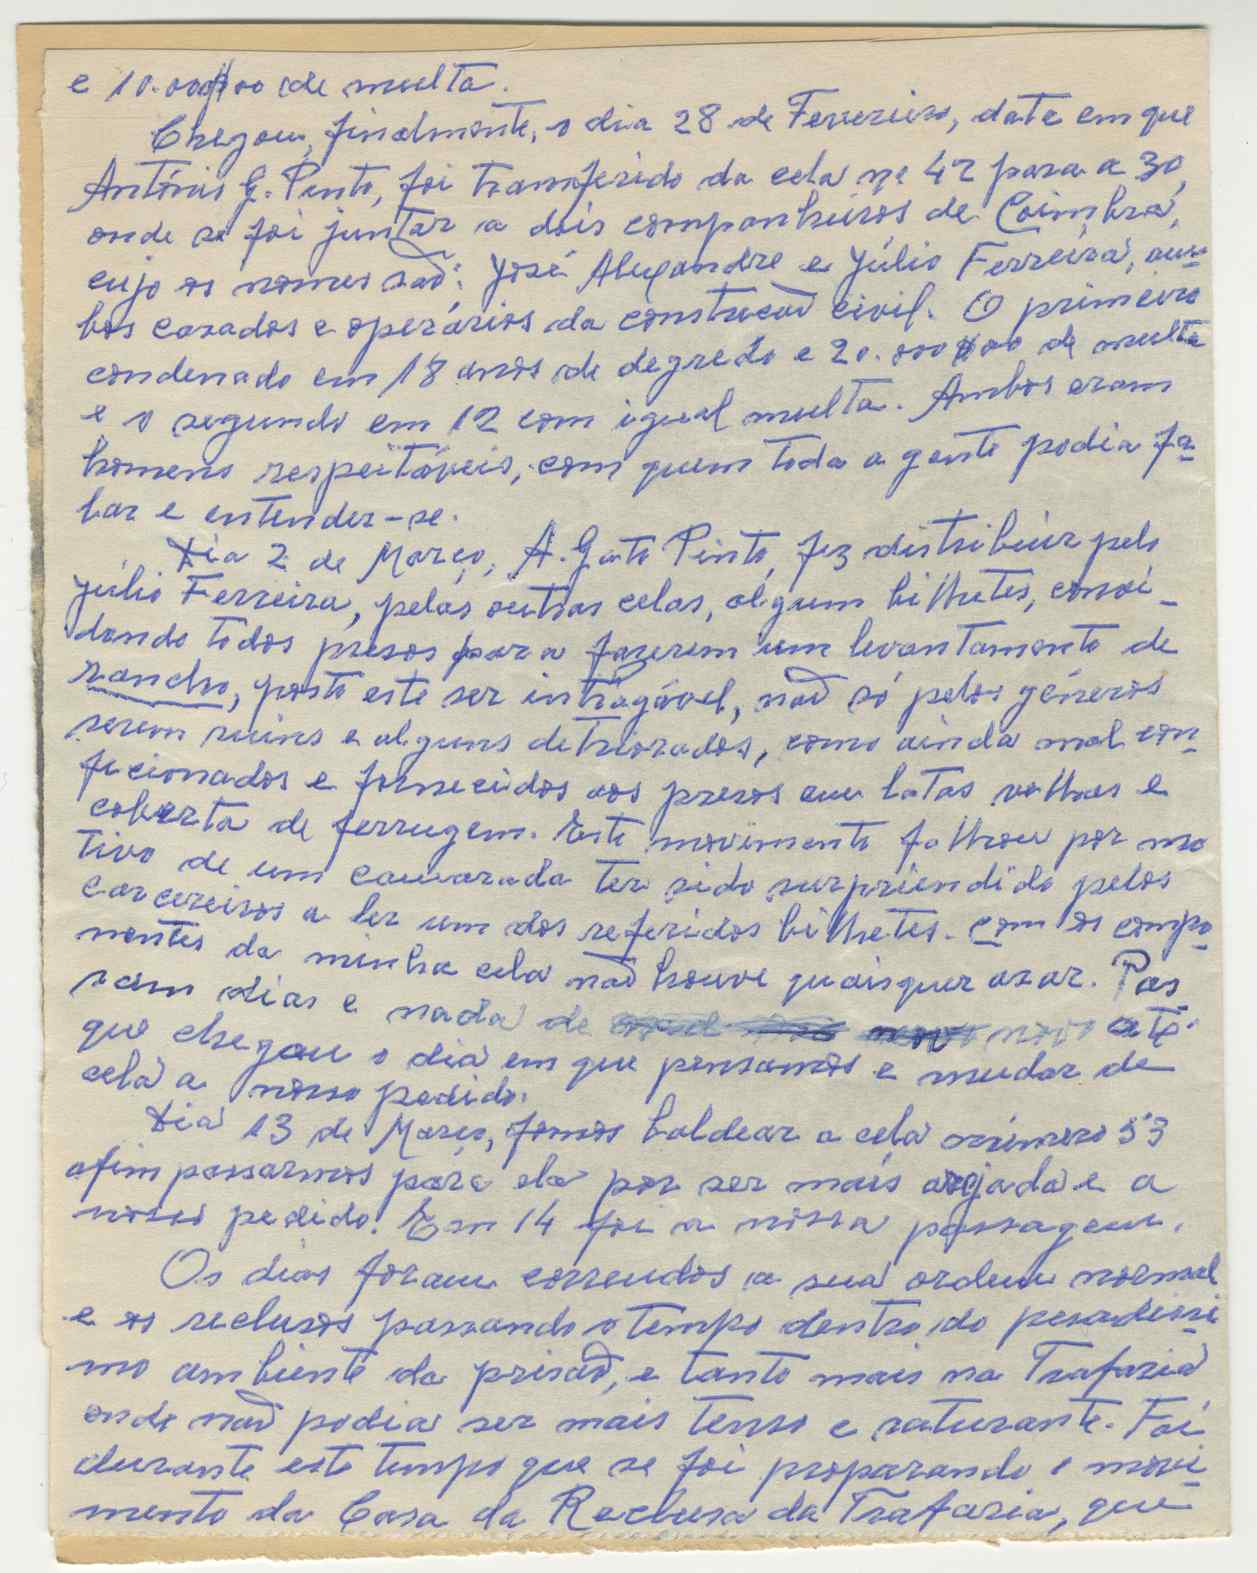 e 10.000$00 de multa.
Chegou, finalmente, o dia 28 de Fevereiro, data em que
António G. Pinto, foi transferido da cela nº 42 para a 30,
onde se foi juntar a dois companheiros de Coimbra,
cujo os nomes saõ: José Alexandre e Júlio Ferreira, am-
bos casados e operários da construcaõ civil. O primeiro
condenado em 18 anos de degredo e 20.000$00 de multa
e o segundo em 12 com igual multa. Ambos eram
homens respeitáveis, com quem toda a gente podia fa-
lar e entender-se.
Dia 2 de Março, A. Gato Pinto, fez distribuir pelo
Júlio Ferreira, pelas outras celas, algum bilhetes, convi-
dando todos presos para fazerem um levantamento de
rancho, posto este ser intragável, naõ só pelos géneros
serem ruins e alguns detriorados, como ainda mal con-
fecionados e fornecidos aos presos em latas velhas e
coberta de ferrugem. Este movimento falhou por mo
tivo de um camarada ter sido surpriendido pelos
carcereiros a ler um dos referidos bilhetes. Com os compo-
nentes da minha cela naõ houve quaisquer azar. Pas-
sam dias e nada de novo até
que chegou o dia em que pensamos e mudar de
cela a nosso pedido.
Dia 13 de Março, fomos baldear a cela número 53
afim passarmos para ela por ser mais arejada e a
nosso pedido. Em 14 foi a nossa passagem.
Os dias foram correndos a sua ordem normal
e os reclusos passando o tempo dentro do pesadissi-
mo ambiente da prisaõ, e tanto mais na Trafaria
onde naõ podia ser mais tenso e saturante. Foi
durante este tempo que se foi preparando o movi-
mento da Casa da Reclusa da Trafaria, que